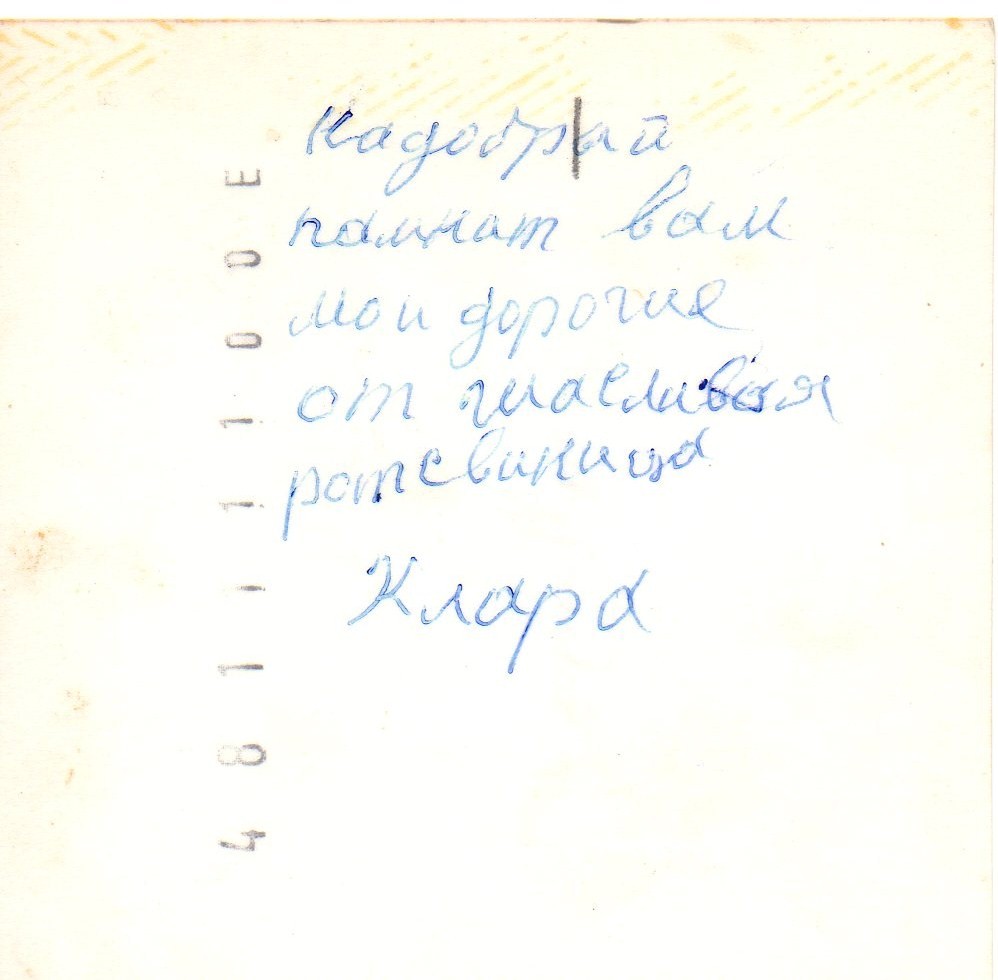 Кадобрай
памнат вам
мои дорогие
от щасливоя
ротсвиница
Клара
4 8 1 1 1 1 0 0 E